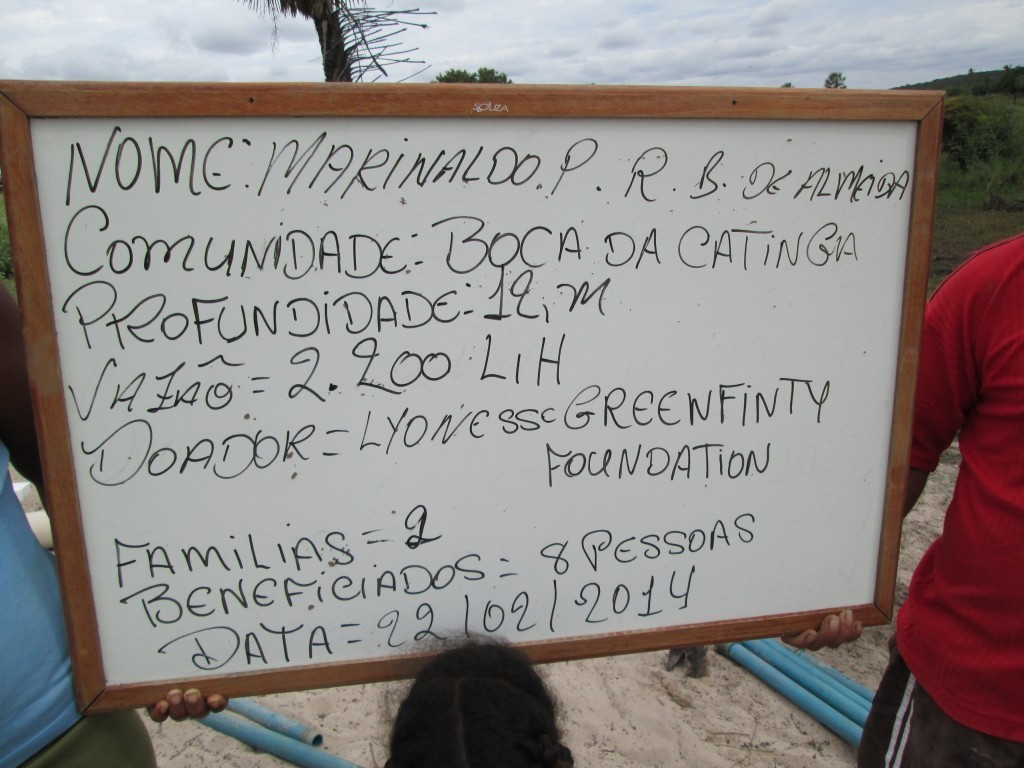 NOME: MARINALDO. P. R. B. DE ALMEIDA
COMUNIDADE: BOCA DA CATINGA
PROFUNDIDADE: 12, M
VAZÃO = 2.200 L|H
DOADOR = LYONESSE GREENFINTY
FOUNDATION
FAMILIAS = 2
BENEFICIADOS = 8 PESSOAS
DATA = 22/02/2014